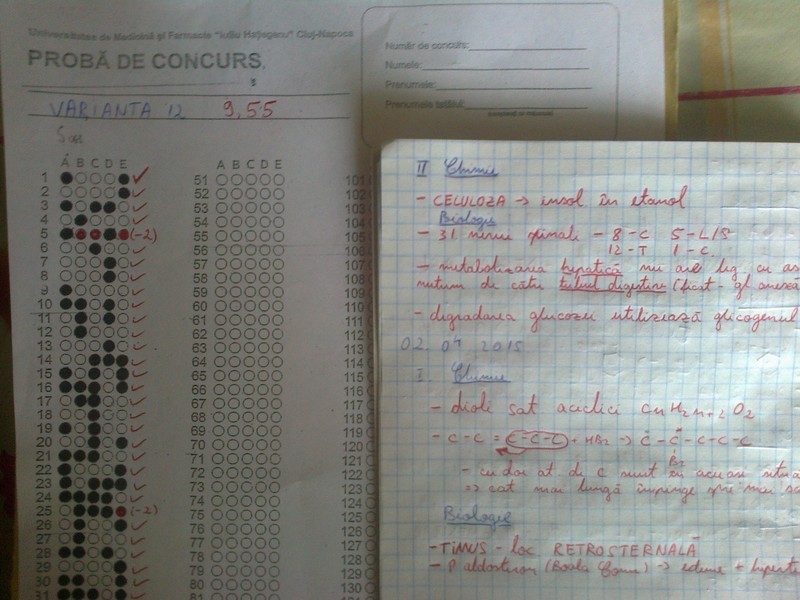 Universitatea de Medicină şi Farmacie "Iuliu Haţieganu" Cluj-Napoca
PROBĂ DE CONCURS
Număr de concurs:
Numele:
Prenumele:
Prenumele tatălui:
VARIANTA 12 9,55
A B C D E
A B C D E
1
2
3
4
5 (-2)
6
7
8
9
10
11
12
13
14
15
16
17
18
19
20
21
22
23
24
25 (-2)
26
27
28
29
30
31
51
52
53
54
55
56
57
58
59
60
61
62
63
64
65
66
67
68
69
70
71
72
73
74
75
76
77
78
79
80
81
101
102
103
104
105
106
107
108
109
110
111
112
113
114
115
116
117
118
119
120
121
122
123
124
125
126
127
128
129
130
131
II Chimie
- CELULOZA → insol în etanol
Biologie
- 31 nervi spinali - 8-C 5-L/S
12-T 1-C
- metabolizarea hepatică nu are leg cu
de către tubul digestiv (ficat - gl anexă
- degradarea glucozei utilizează glicogenul
02. 04 2015
I. Chimie
- dioli sat aciclici CnH2n+2O2
- C-C = C-C-C + HBr → C-C-C-C-C
Br
- cu doi at. de C sunt în aceeași
⇒ cat mai lungă împinge mai
Biologie
- TIMUS - loc. RETROSTERNALĂ
- aldosteron (Boala Conn) → edeme +